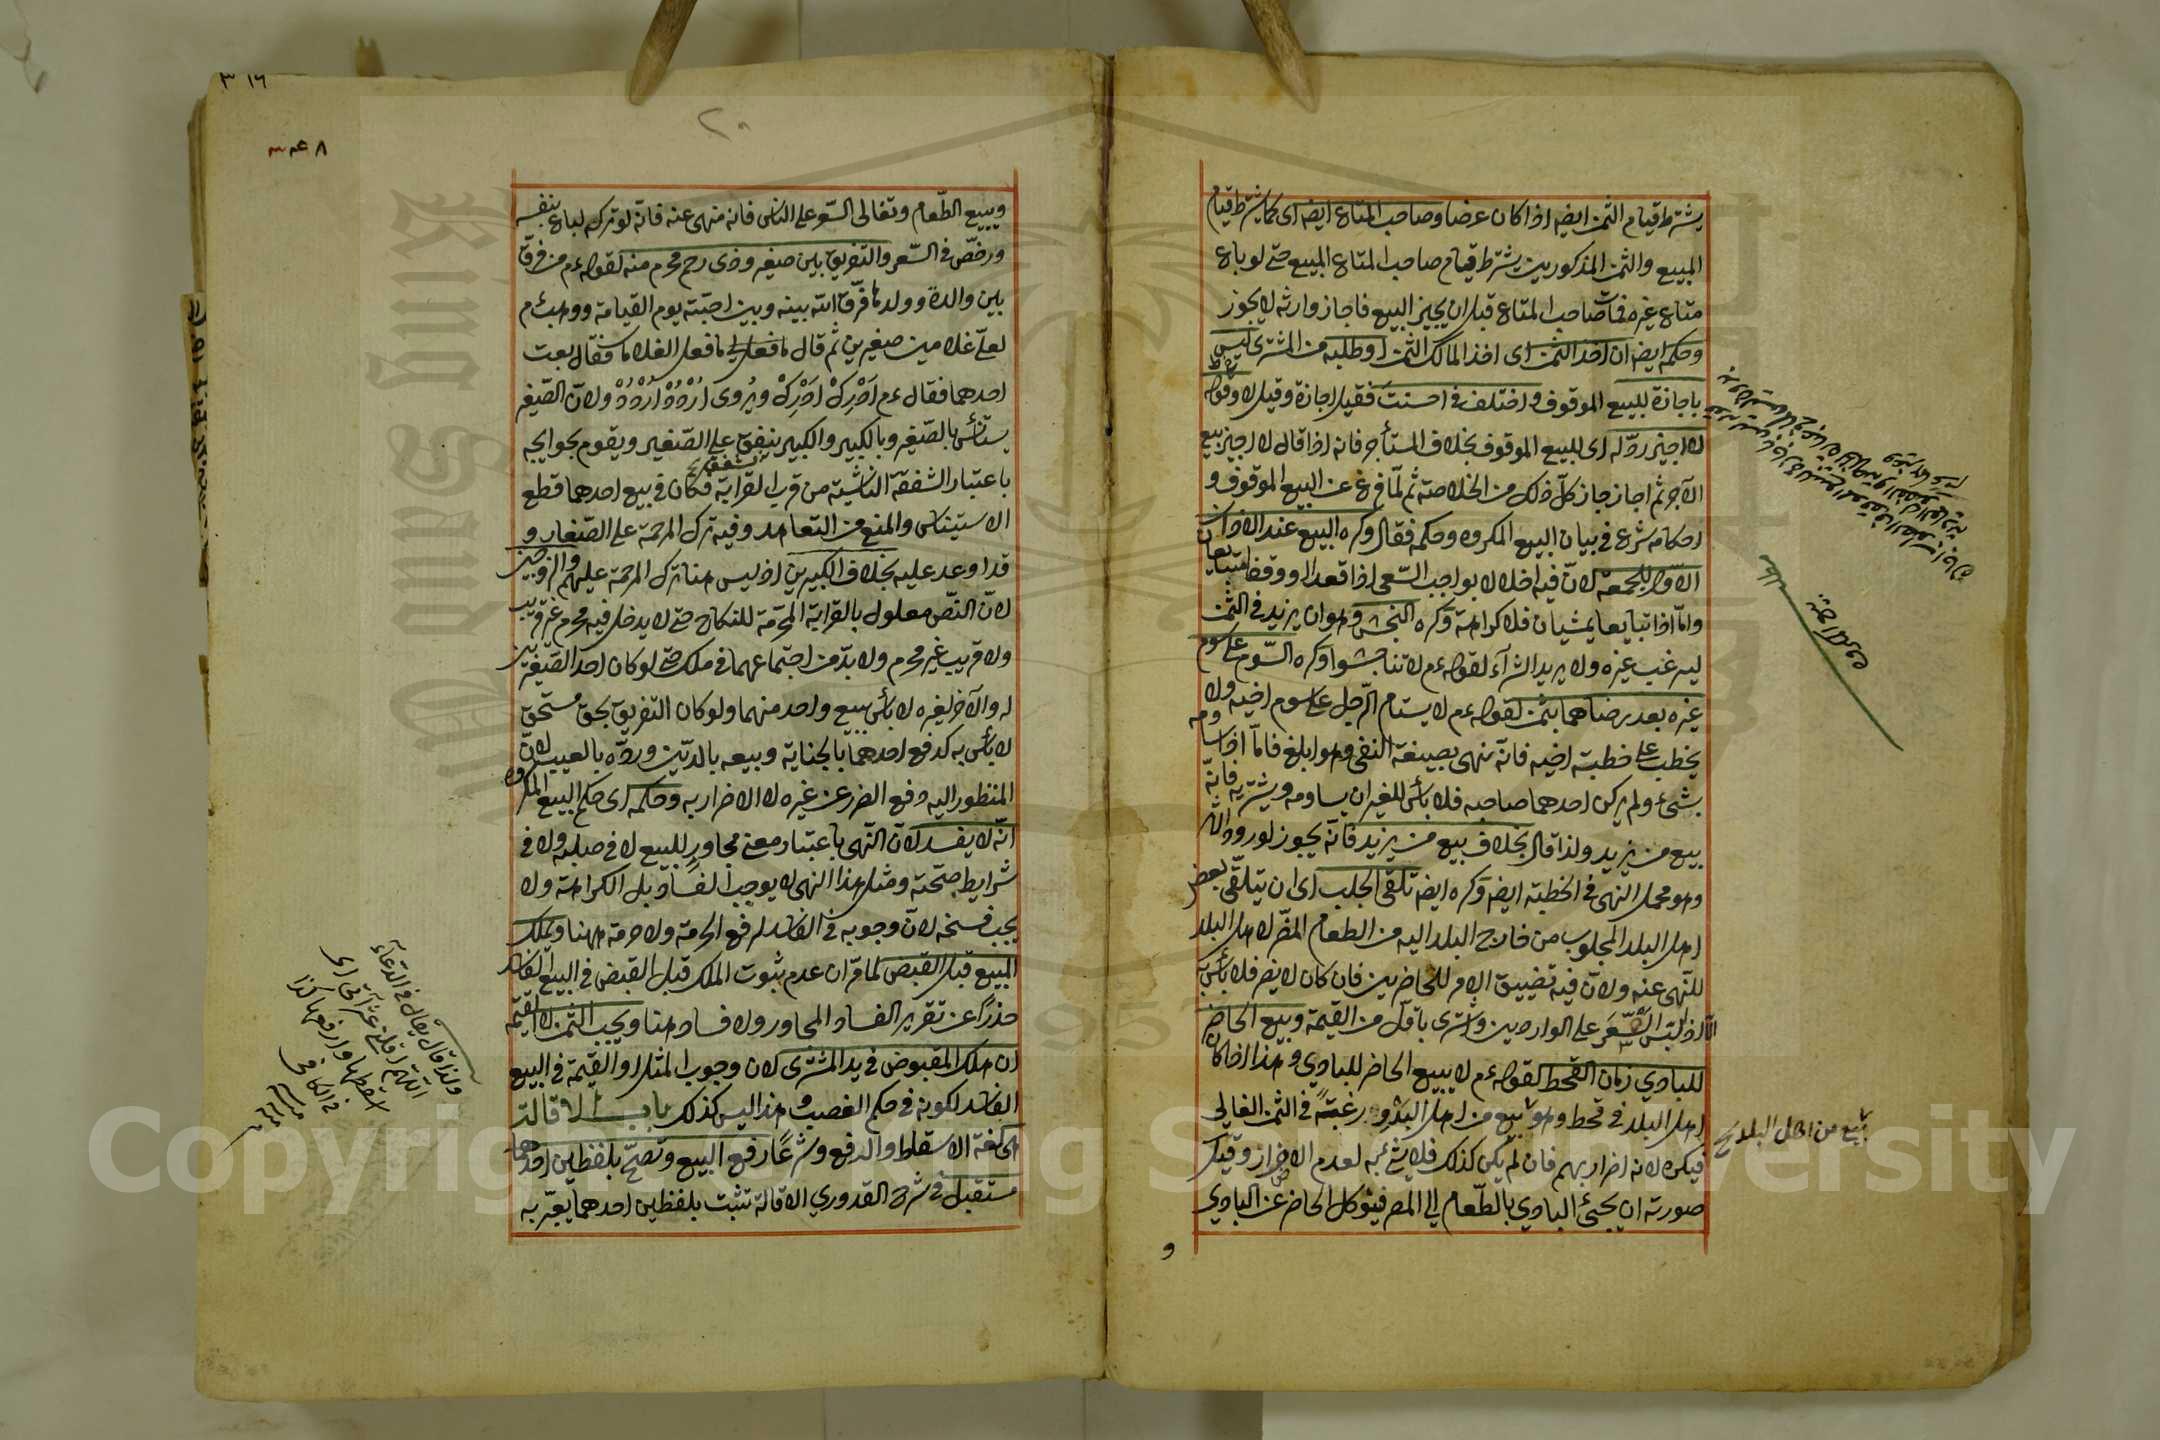 يشترط قيام الثمن ايضه اذا كان عرضا وصاحب المتاع ايضه اى كما يشترط قيام
المبيع والثمن المذكورين يشترط قيام صاحب المتاع المبيع حتى لو باع
متاع غيره فمات صاحب المتاع قبل ان يجيز البيع فاجاز وارثه لا يجوز
وحكم ايضه ان اخذ الثمن اى اخذ المالك الثمن او طلبه من المشترى ليس
باجازة للبيع الموقوف واختلف فى احسنت فقيل اجازة وقيل لا وقوله
لا اجيز ردّ له اى للبيع الموقوف بخلاف المستأجر فانه اذا قال لا اجيز بيع
الآجر ثم اجاز جاز كلّ ذلك من الخلاصة ثم لمّا فرغ عن البيع الموقوف و
احكامه شرع فى بيان البيع المكروه وحكمه فقال وكره البيع عند الاذان
الاوّل للجمعة لانّ فيه اخلالا بواجب السّعى اذا قعدا او وقفا يتبايعان
وامّا اذا تبايعا يمشيان فلا كراهة وكره النجش وهو ان يزيد فى الثمن
ليرغب غيره ولا يريد الشرآء لقوله ءم لا تناجشوا وكره السّوم على سوم
غيره بعد رضاهما بثمن لقوله ءم لا يستام الرّجل على سوم اخيه ولا
يخطب على خطبة اخيه فانّه نهى بصيغة النفى وهو ابلغ فامّا اذا ساومه
بشىء ولم يركن احدهما صاحبه فلا بأس للغير ان يساومه ويشتريه فانّه
بيع من يزيد ولذا قال بخلاف بيع من يزيد فانّه يجوز لورود الاثر
وهو محمل النهى فى الخطبة ايضه وكره ايضه تلقى الجلب اى ان يتلقّى بعض
اهل البلد المجلوب من خارج البلد اليه من الطعام المضّر لاهل البلد
للنّهى عنه ولانّ فيه تضييق الامر للحاضرين فان كان لا يضر فلا بأس به
الا اذا لبّس السّعر على الواردين واشترى باقلّ من القيمة وبيع الحاضر
للبادي زمان القحط لقوله ءم لا يبيع الحاضر للبادي وهذا اذا كان
اهل البلد فى قحط وهو يبيع من اهل البدو رغبةً فى الثمن الغالي
فيكره لانه اضرار بهم فان لم يكن كذلك فلا شئ به لعدم الاضرار وقيل
صورته ان يجئ البادي بالطّعام الى المصر فيتوكل الحاضر عن البادي
و
البيع المكروه
يبيع من اهل البلد نسخ
٣١٦
٣٤٨
٢٠
ويبيع الطّعام وتغالى السّعر على الناس فانه منهى عنه فانّه لو تركه لباع بنفسه
ورخّص فى السّعر والتفريق بين صغير وذى رحم محرم منه لقوله ءم من فرّق
بين والدة وولدها فرّق الله بينه وبين احبّته يوم القيامة ووهب ءم
لعلىّ غلامين صغيرين ثم قال ما فعل ما فعل الغلامان فقال بعت
احدهما فقال ءم اَدْرِكْ اَدْرِكْ ويُروى اُرْدُدْ اُرْدُدْ ولانّ الصّغير
يستأنس بالصّغير وبالكبير والكبير ينفق على الصّغير ويقوم بحوايجه
باعتبار الشفقة الناشية من قرب القرابة فكان فى بيع احدهما قطع
الاستيناس والمنع من التعاهد وفيه ترك المرحمة على الصّغار و
قد اوعد عليه بخلاف الكبيرين اذ ليس هنا ترك المرحمة عليهم والزوجين
لانّ النّص معلول بالقرابة المحرّمة للنكاح حتى لا يدخل فيه محرم غير قريب
ولا قريب غير محرم ولا بدّ من اجتماعهما فى ملك حتى لو كان احد الصّغيرين
له والآخر لغيره لا بأس ببيع واحد منهما ولو كان التفريق بحق مستحق
لا بأس به كدفع احدهما بالجناية وبيعه بالدّين وردّه بالعيب لانّ
المنظور اليه دفع الضرر عن غيره لا الاضرار به وحكمه اى حكم البيع المكروه
انّه لا يفسد لانّ النّهى باعتبار معنى مجاور للبيع لا فى صلبه ولا فى
شرايط صحّته ومثل هذا النهى لا يوجب الفساد بل الكراهة ولا
يجب فسخه لانّ وجوبه فى الفاسد لرفع الحرمة ولا حرمة ههنا ويملك
المبيع قبل القبض لما مرّ ان عدم ثبوت الملك قبل القبض فى البيع الفاسد
حذرًا عن تقرير الفساد المجاور ولا فساد هنا ويجب الثمن لا القيمة
ان هلك المقبوض فى يد المشترى لان وجوب المثل او القيمة فى البيع
الفاسد لكونه فى حكم الغصب وهذا ليس كذلك باب الاقالة
هى لغة الاسقاط والدفع وشرعًا رفع البيع وتصحّ بلفظين احدهما
مستقبل فى شرح القدوري الاقالة تثبت بلفظين احدهما يعبّر به
ولذا قال يقال فى الدّعآء
اللّهم اقلنى عثراتى اى
اسقطها وارفعها كذا
فى الكافى